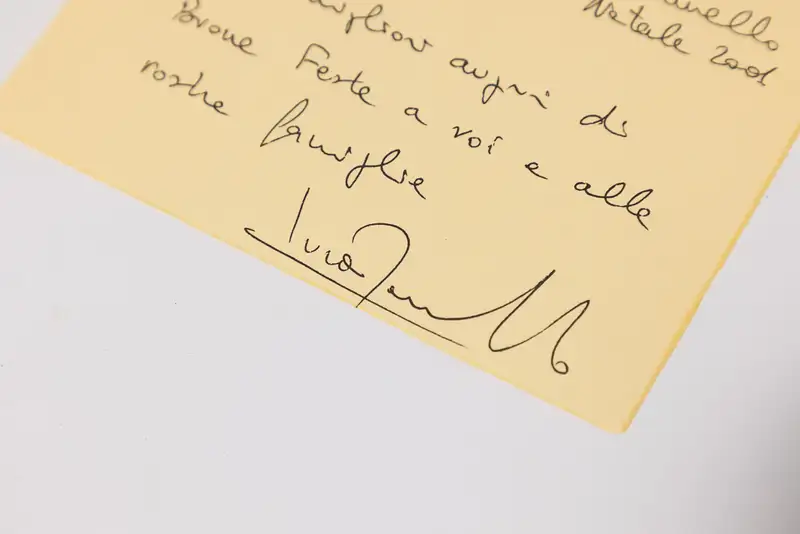 Natale 2001
auguri di
Buone Feste a voi e alle
vostre famiglie